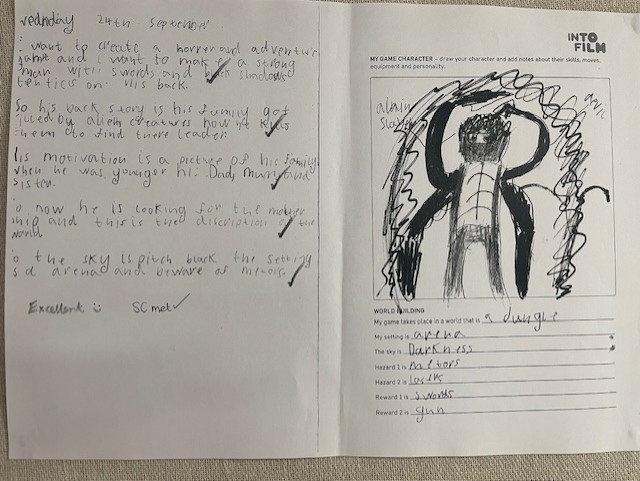 wednday 24th September
I want to create a horrer and adventure
game and I want to make a strong
man with swords and black shadows
tenticls on his back.
So his back story is his family got
killed by alien creatures now he kills
them to find there leader.
His motivation is a picture of his family
when he was younger his Dad, Mum and
sister.
So now he is looking for the mother
ship and this is the discription of the
world
So the sky is pitch black the setting
is a arena and beware of metors
Excellent SC met
INTO
FILM
MY GAME CHARACTER – draw your character and add notes about their skills, moves,
equipment and personality.
WORLD BUILDING
My game takes place in a world that is a Jungle
My setting is arena
The sky is Darkness
Hazard 1 is metors
Hazard 2 is
Reward 1 is swords
Reward 2 is gun